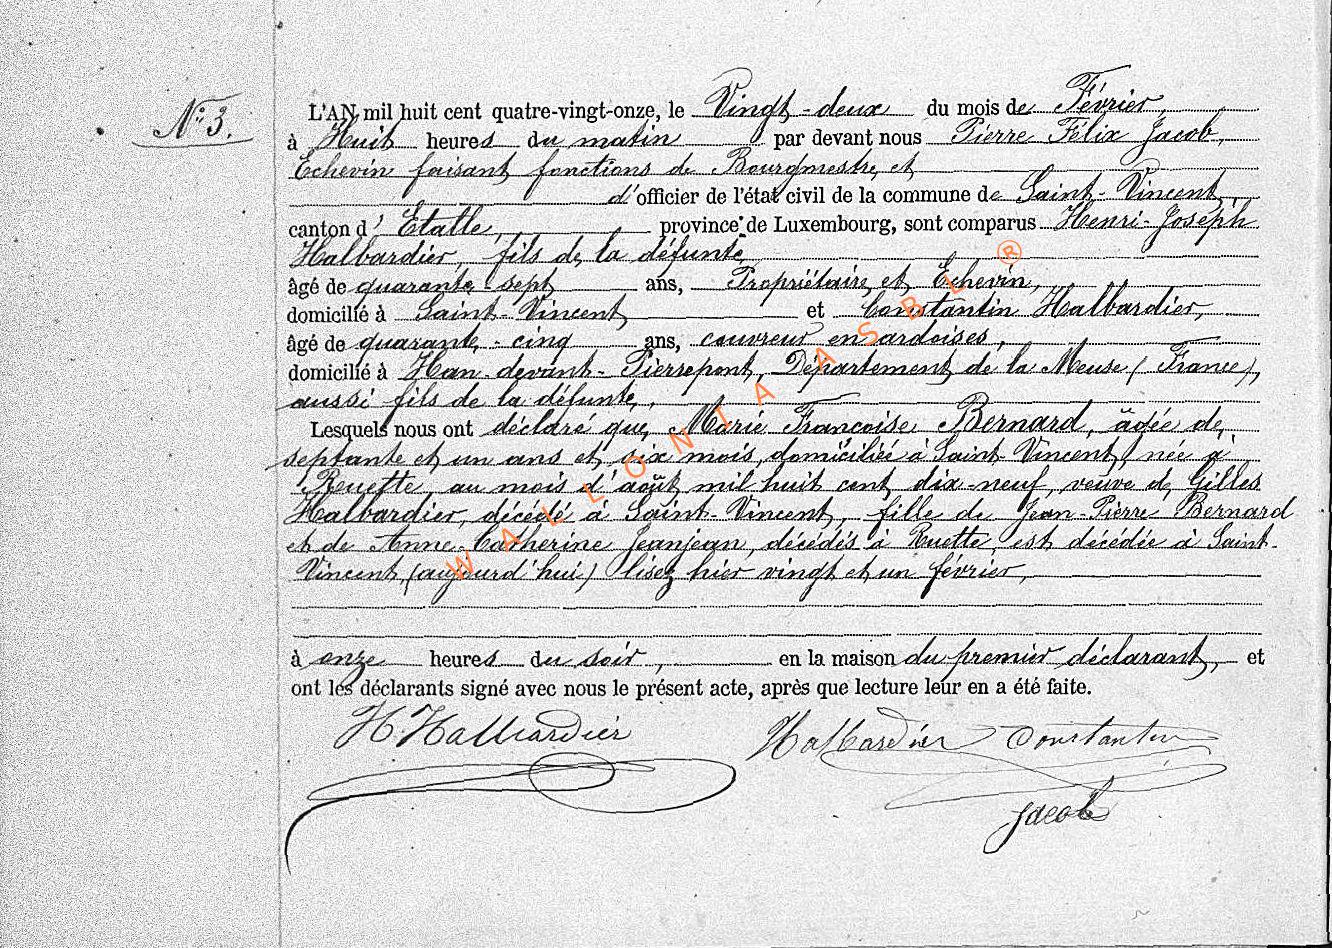 N° 3.
L'AN mil huit cent quatre-vingt-onze, le Vingt-deux du mois de Février,
à Huit heures du matin par devant nous Pierre Félix Jacob,
Echevin faisant fonctions de Bourgmestre, et
d'officier de l'état civil de la commune de Saint-Vincent
canton d' Etalle, province de Luxembourg, sont comparus Henri-Joseph
Halbardier, fils de la défunte
âgé de quarante-sept ans, Propriétaire, et Echevin,
domicilié à Saint-Vincent et Constantin Halbardier,
âgé de quarante-cinq ans, couvreur en ardoises,
domicilié à Han-devant-Pierrepont, Département de la Meuse (France),
aussi fils de la défunte,
Lesquels nous ont déclaré que, Marie Françoise Bernard, âgée de
septante et un ans et six mois, domiciliée à Saint-Vincent, née à
Ruette, au mois d'août mil huit cent dix-neuf, veuve de Gilles
Halbardier, décédé à Saint-Vincent, fille de Jean-Pierre Bernard
et de Anne-Catherine Jeanjean, décédés à Ruette, est décédée à Saint-
Vincent, (aujourd'hui) lisez hier vingt et un février,
à onze heures du soir, en la maison du premier déclarant, et
ont les déclarants signé avec nous le présent acte, après que lecture leur en a été faite.
H. Halbardier
Halbardier Constantin
Jacob
WALLONIA ASBL ®